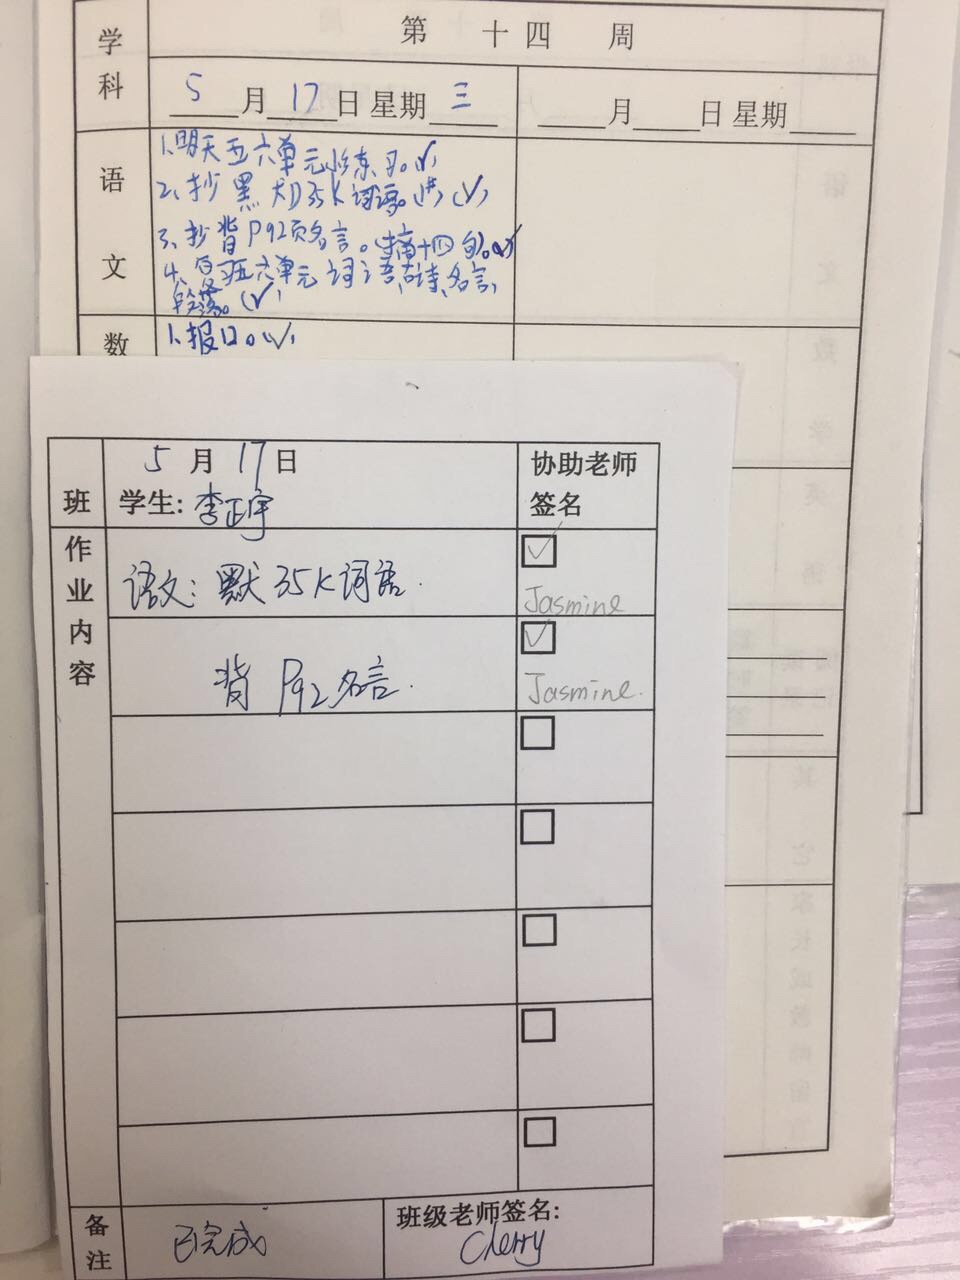 学科
第 十四 周
5月17日 星期三
月 日 星期
语文
1、明天五六单元练习。(✓)
2、抄黑犬D35K词语。(✓)
3、抄背P92页名言。(摘十四句)。(✓)
4、复习五六单元词语、古诗、名言、
段落。(✓)
数
1、报口。(✓)
5月17日
协助老师
签名
班
学生:李正宇
作业内容
语文:默35K词语.
✓
Jasmine
背P92名言.
✓
Jasmine.
备注
已完成
班级老师签名:
Cherry